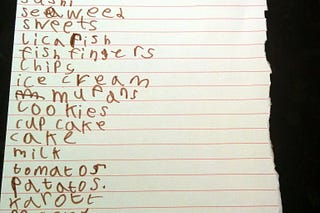 sushi
seaweed
sweets
Licafish
fish fingers
chips
ice cream
mufans
cookies
cup cake
cake
milk
tomatos
patatos.
karott